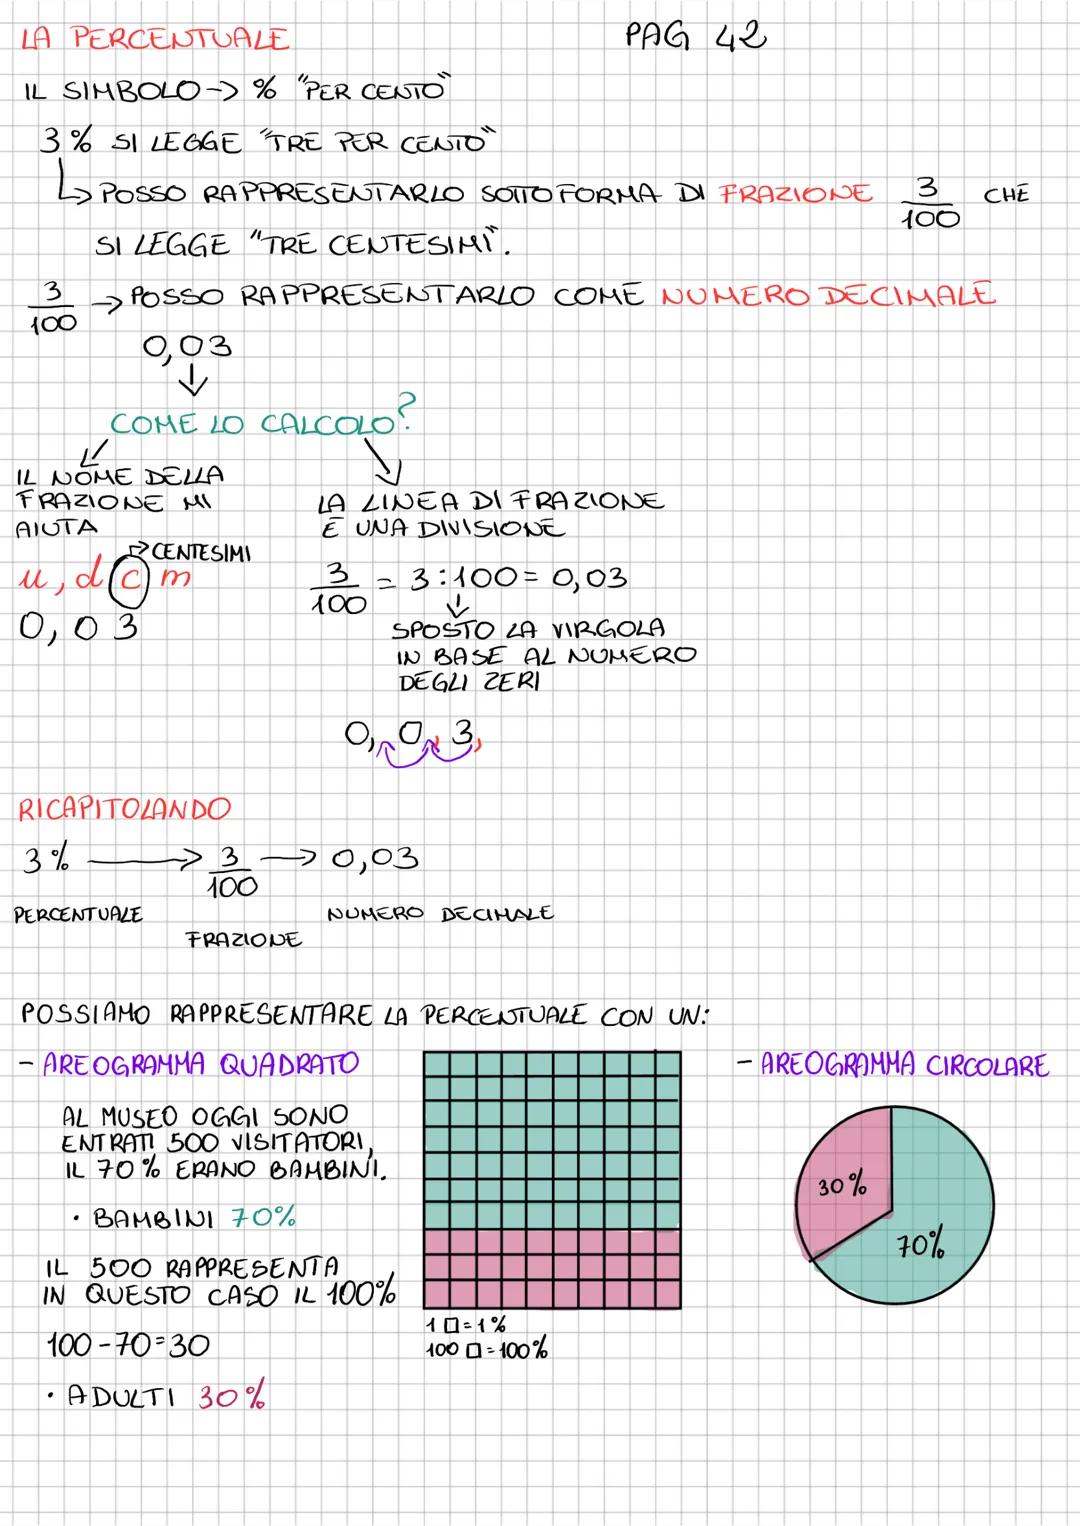 LA PERCENTUALE PAG 42
IL SIMBOLO -> % "PER CENTO"
3% SI LEGGE "TRE PER CENTO"
↳ POSSO RAPPRESENTARLO SOTTOFORMA DI FRAZIONE 3/100 CHE
SI LEGGE "TRE CENTESIMI".
3/100 → POSSO RAPPRESENTARLO COME NUMERO DECIMALE
0,03
↓
COME LO CALCOLO?
IL NOME DELLA
FRAZIONE MI
AIUTA
CENTESIMI
u, d c m
0,03
LA LINEA DI FRAZIONE
È UNA DIVISIONE
3/100 = 3:100 = 0,03
↓
SPOSTO LA VIRGOLA
IN BASE AL NUMERO
DEGLI ZERI
0, 0, 3,
RICAPITOLANDO
3% → 3/100 → 0,03
PERCENTUALE
FRAZIONE
NUMERO DECIMALE
POSSIAMO RAPPRESENTARE LA PERCENTUALE CON UN:
- AREOGRAMMA QUADRATO
AL MUSEO OGGI SONO
ENTRATI 500 VISITATORI,
IL 70% ERANO BAMBINI.
· BAMBINI 70%
IL 500 RAPPRESENTA
IN QUESTO CASO IL 100%
100-70=30
· ADULTI 30%
1 □=1%
100 □=100%
- AREOGRAMMA CIRCOLARE
30%
70%